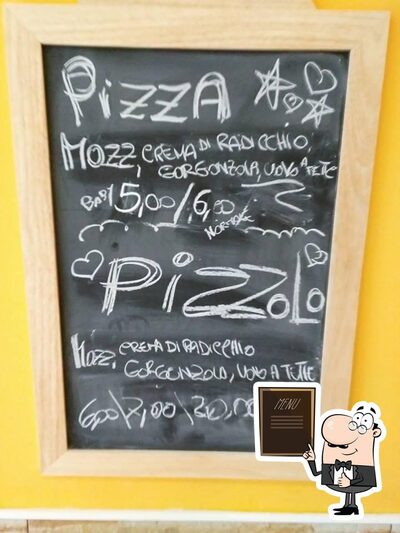 PizzA
MOZZ, CREMA DI RADICCHIO,
GORGONZOLA, UOVO A FETTE
BABY 5,00/6,00
NORMALE
PizzOlo
MOZZ, CREMA DI RADICCHIO
GORGONZOLA, UOVO A FETTE
6,00\7,00\20,00
MENU